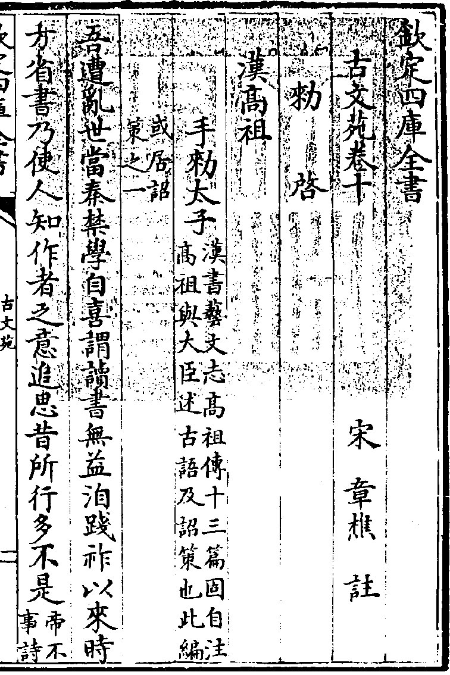 欽定四庫全書
古文苑卷十
宋 章樵 註
勑 啓
漢髙祖
手勑太子
漢書藝文志髙祖傳十三篇固自注
髙祖與大臣述古語及詔策也此編
或居詔
策之一
吾遭亂世當秦禁學自喜謂讀書無益洎踐祚以來時
方省書乃使人知作者之意追思昔所行多不是
帝不
事詩
古文苑